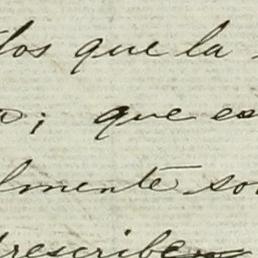 los que la
; que es
lmente so
rescriben